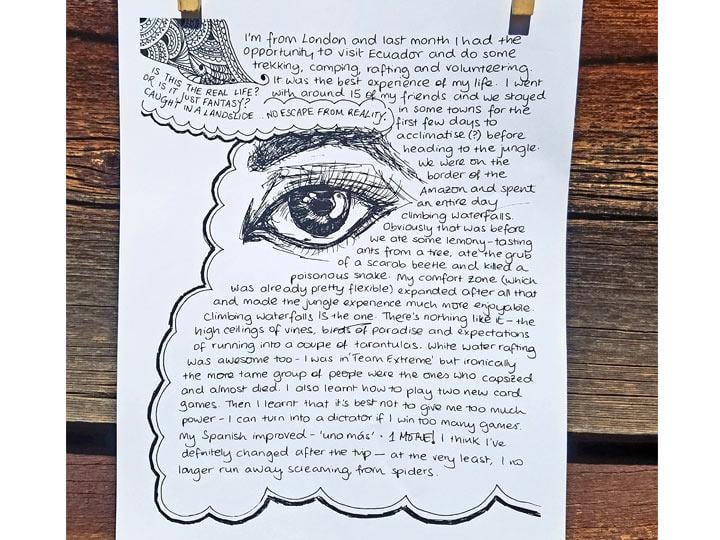 I'm from London and last month I had the
opportunity to visit Ecuador and do some
trekking, camping, rafting and volunteering.
It was the best experience of my life. I went
with around 15 of my friends and we stayed
in some towns for the
first few days to
acclimatise (?) before
heading to the jungle.
We were on the
border of the
Amazon and spent
an entire day
climbing waterfalls.
Obviously that was before
we ate some lemony-tasting
ants from a tree, ate the grub
of a scarab beetle and killed a
poisonous snake. My comfort zone (which
was already pretty flexible) expanded after all that
and made the jungle experience much more enjoyable.
Climbing waterfalls IS the one. There's nothing like it - the
high ceilings of vines, birds of paradise and expectations
of running into a couple of tarantulas. White water rafting
was awesome too - I was in 'Team Extreme' but ironically
the more tame group of people were the ones who capsized
and almost died. I also learnt how to play two new card
games. Then I learnt that it's best not to give me too much
power - I can turn into a dictator if I win too many games.
My Spanish improved - 'uno más' · 1 MORE! I think I've
definitely changed after the trip — at the very least, I no
longer run away screaming from spiders.
IS THIS THE REAL LIFE?
OR IS IT JUST FANTASY?
CAUGHT IN A LANDSLIDE... NO ESCAPE FROM REALITY.